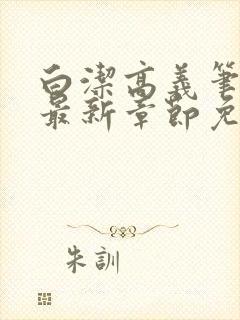 白潔高義筆
最新章節免
朱訓